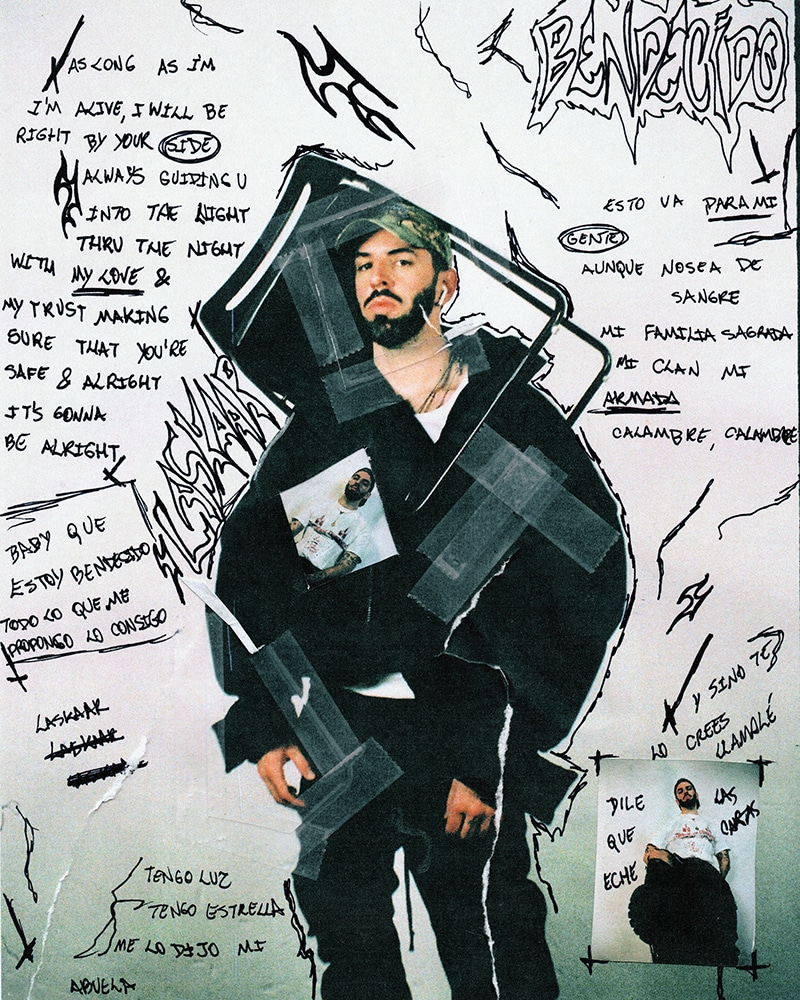 BENDECIDO
AS LONG AS I'M
I'M ALIVE, I WILL BE
RIGHT BY YOUR SIDE
ALWAYS GUIDING U
INTO THE LIGHT
THRU THE NIGHT
WITH MY LOVE &
MY TRUST MAKING
SURE THAT YOU'RE
SAFE & ALRIGHT
IT'S GONNA
BE ALRIGHT
LASKAAR
BABY QUE
ESTOY BENDECIDO
TODO LO QUE ME
PROPONGO LO CONSIGO
LASKAAR
LASKAAR
TENGO LUZ
TENGO ESTRELLA
ME LO DIJO MI
ABUELA
ESTO VA PARA MI
GENTE
AUNQUE NO SEA DE
SANGRE
MI FAMILIA SAGRADA
MI CLAN MI
ARMADA
CALAMBRE, CALAMBRE
Y SINO TE
LO CREES LLAMALÉ
DILE LAS
QUE CARTAS
ECHE